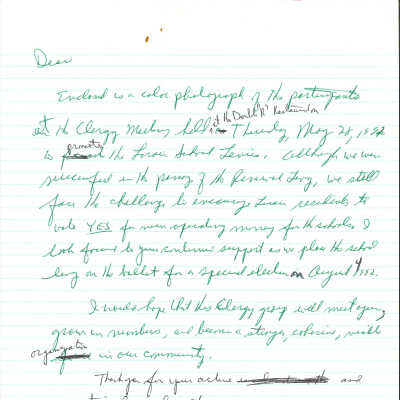 Dear
Enclosed is a color photograph of the participants
at the Double "R" Restaurant on
at the Clergy Meeting held Thursday, May 28, 1992
promote
to the Lorain School Levies. Although we were
successful in the passing of the Renewal Levy, we still
face the challenge to encourage Lorain residents to
vote YES for new operating money for the schools. I
look forward to your continued support as we place the school
levy on the ballot for a special election on August 4, 1992.
I would hope that this Clergy group will meet again,
grow in numbers, and become a stronger, cohesive, visible
organization in our community.
Thank you for your active and